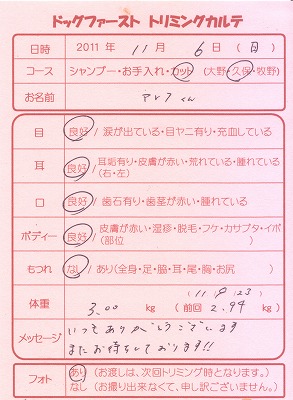 ドッグファースト トリミングカルテ
日時 2011 年 11 月 6 日 ( 日 )
コース シャンプー・お手入れ・カット (大野・久保・牧野)
お名前 くん
目 良好 / 涙が出ている・目ヤニ有り・充血している
耳 良好 / 耳垢有り・皮膚が赤い・荒れている・腫れている
(右・左)
口 良好 / 歯石有り・歯茎が赤い・腫れている
ボディー 良好 / 皮膚が赤い・湿疹・脱毛・フケ・カサブタ・イボ
(部位 )
もつれ なし / あり(全身・足・脇・耳・尾・胸・お尻 )
(11 9/23)
体重 3.00 kg ( 前回 2.94 kg )
メッセージ いつもありがとうございます
またお待ちしております!!
フォト あり (お渡しは、次回トリミング時となります。)
なし (お撮り出来なくて、申し訳ございません。)